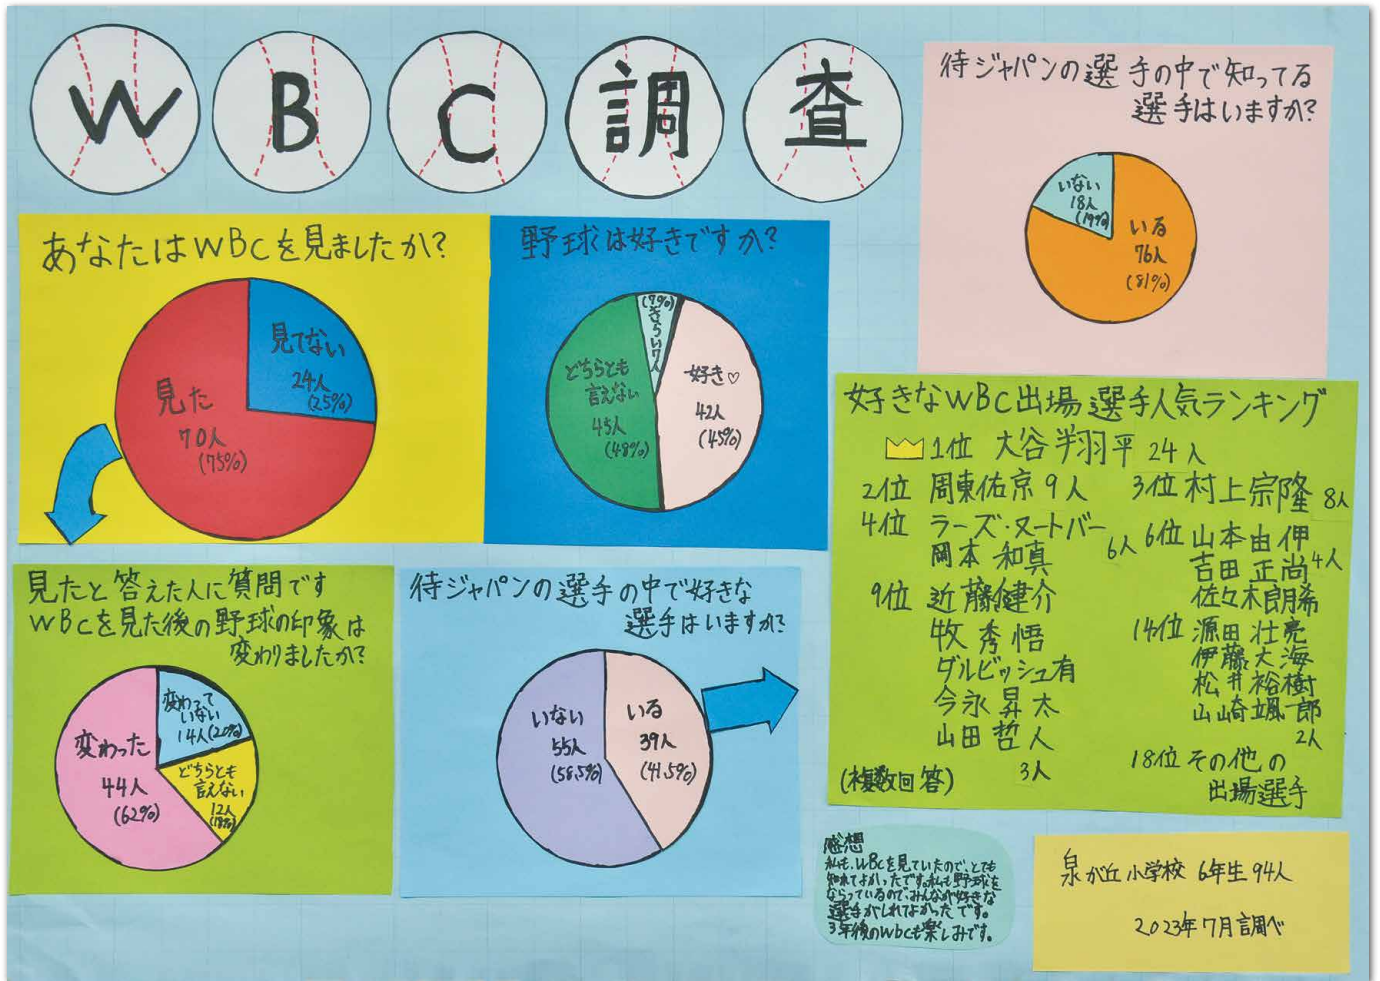 WBC調査
あなたはWBCを見ましたか?
見てない
24人
(25%)
見た
70人
(75%)
野球は好きですか?
(7%)
きらい7人
どちらとも
言えない
45人
(48%)
好き♡
42人
(45%)
侍ジャパンの選手の中で知ってる
選手はいますか?
いない
18人
(19%)
いる
76人
(81%)
見たと答えた人に質問です
WBCを見た後の野球の印象は
変わりましたか?
変わって
いない
14人(20%)
変わった
44人
(62%)
どちらとも
言えない
12人
(18%)
侍ジャパンの選手の中で好きな
選手はいますか?
いない
55人
(58.5%)
いる
39人
(41.5%)
好きなWBC出場選手人気ランキング
1位 大谷翔平 24人
2位 周東佑京 9人
3位 村上宗隆 8人
4位 ラーズ・ヌートバー
岡本和真
6人
6位 山本由伸
吉田正尚
佐々木良朗希
4人
9位 近藤健介
牧秀悟
ダルビッシュ有
今永昇太
山田哲人
3人
14位 源田壮亮
伊藤大海
松井裕樹
山崎颯一郎
2人
18位 その他の
出場選手
(複数回答)
感想
私も、WBCを見ていたので、とても
知れてよかったです。私も野球を
ならっているので、みんなが好きな
選手がしれてよかったです。
3年後のWBCも楽しみです。
泉が丘小学校 6年生94人
2023年7月調べ